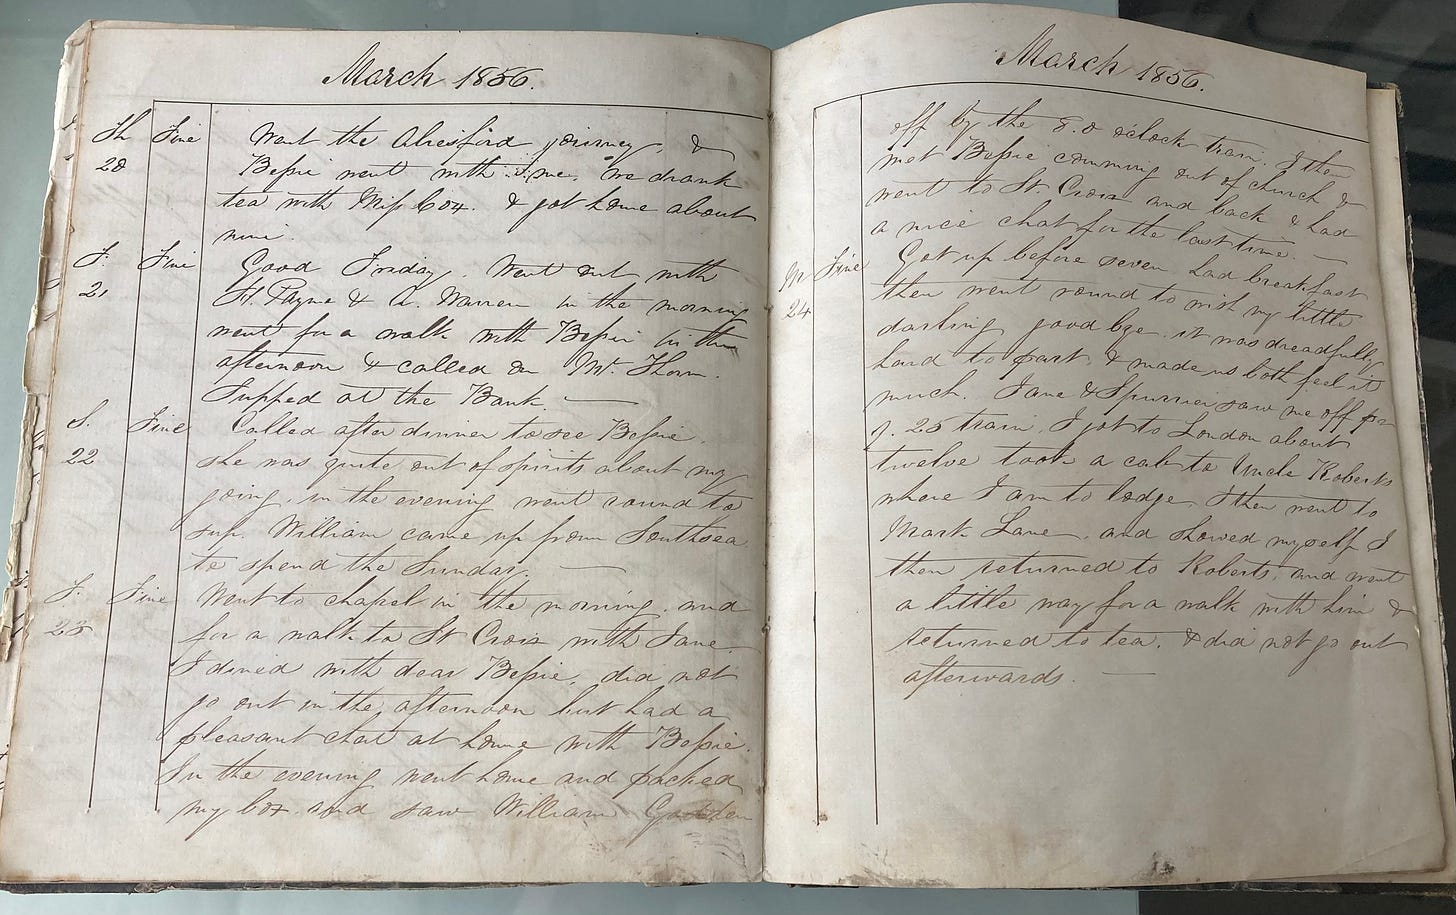 March 1856.
Th Fine Went the Alresford journey, &
20 Bessie went with me, we drank
tea with Miss Cox. & got home about
nine.
F. Fine Good Friday. Went out with
21 H. Payne & A. Warren in the morning
went for a walk with Bessie in the
afternoon & called on Mr. Thorn.
Supped at the Bank. —
S. Fine Called after dinner to see Bessie,
22 she was quite out of spirits about my
going, in the evening went round to
sup. William came up from Southsea
to spend the Sunday. —
S. Fine Went to chapel in the morning, and
23 for a walk to St Croix with Jane.
I dined with dear Bessie, did not
go out in the afternoon but had a
pleasant chat at home with Bessie.
In the evening went home and packed
my box and saw William
March 1856.
off by the 8.0 o'clock train. I then
met Bessie comming out of church &
went to St. Croix and back & had
a nice chat for the last time. —
M Fine Got up before seven had breakfast
24 then went round to wish my little
darling good bye, it was dreadfully
hard to part, & made us both feel it
much. Jane & Spurrier saw me off
25 train, I got to London about
twelve took a cab to Uncle Roberts
where I am to lodge, I then went to
Mark Lane, and showed myself I
then returned to Roberts, and went
a little way for a walk with him &
returned to tea, & did not go out
afterwards. —